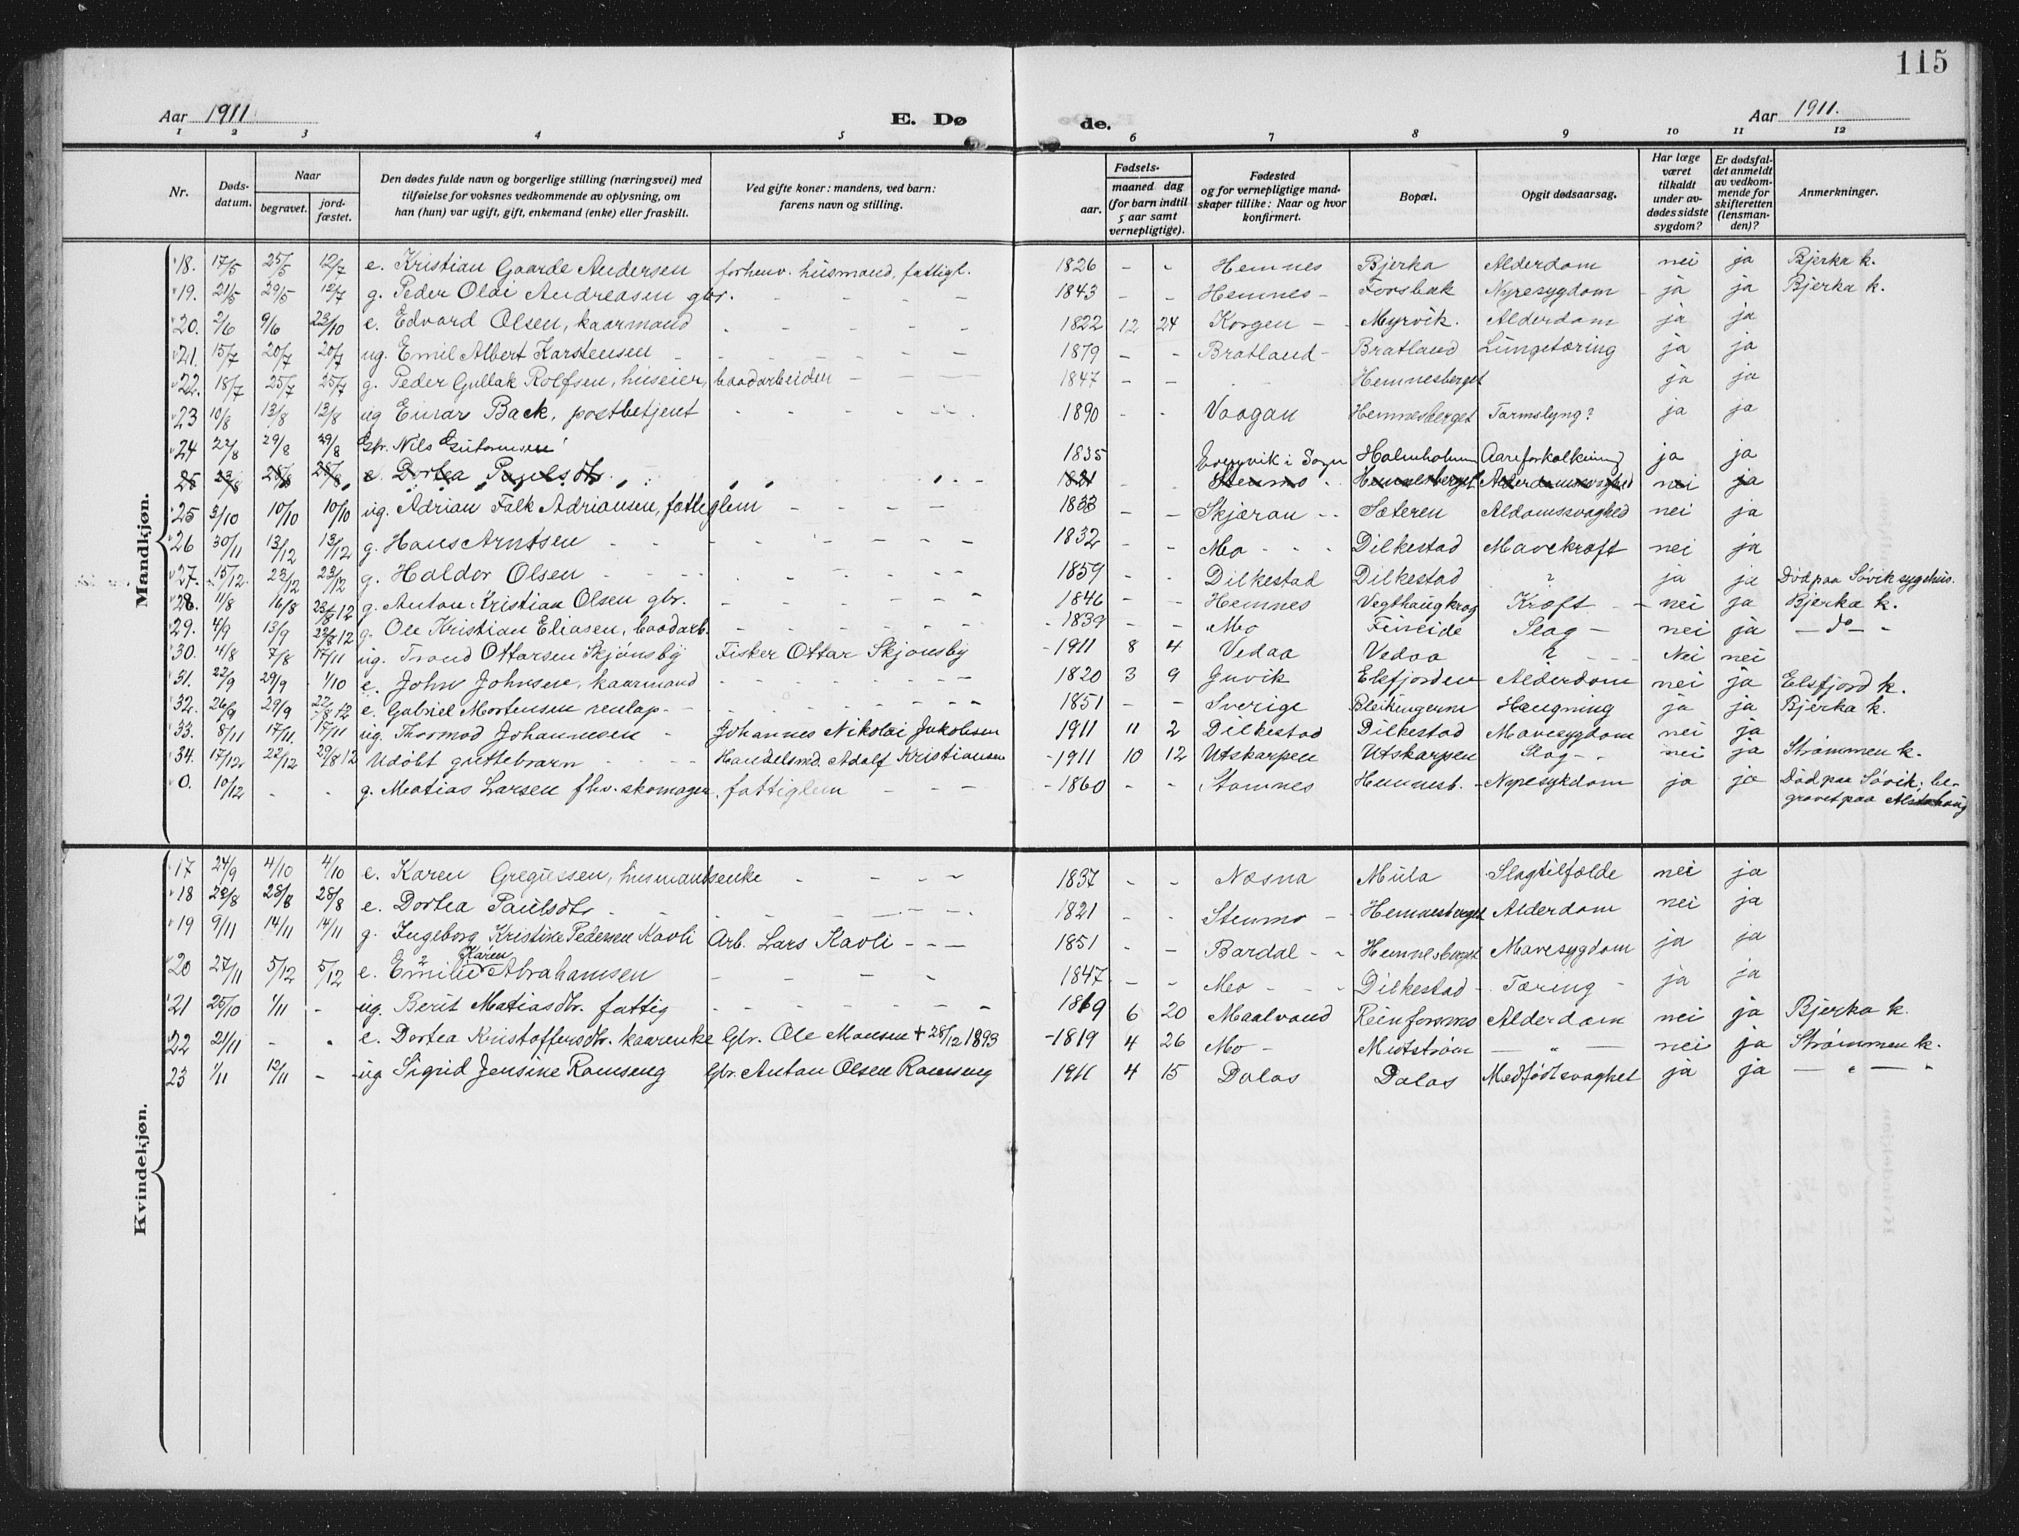 115
Aar 1911 E. Dø de. Aar 1911.
1 2 3 4 5 6 7 8 9 10 11 12
Nr. Døds-datum. Naar begravet. jord-fæstet. Den dødes fulde navn og borgerlige stilling (næringsvei) med tilføielse for voksnes vedkommende av oplysning, om han (hun) var ugift, gift, enkemand (enke) eller fraskilt. Ved gifte koner: mandens, ved barn: farens navn og stilling. Fødsels- aar. maaned dag (for barn indtil 5 aar samt vernepligtige). Fødested og for vernepligtige mandskaper tillike: Naar og hvor konfirmert. Bopæl. Opgit dødsaarsag. Har læge været tilkaldt under avdødes sidste sygdom? Er dødsfaldet anmeldt av vedkommende for skifteretten (lensmanden)? Anmerkninger.
Mandkjøn.
18. 17/5 25/5 12/7 e. Kristian Gaarde Andersen forhenv. husmand, fattigl. 1826 - - Hemnes Bjerka Alderdom nei ja Bjerka k.
19. 21/5 29/5 12/7 g. Peder Olai Andreasen gbr. - - - - 1843 - - Hemnes - Forsbak Nyresygdom - ja ja Bjerka k.
20. 2/6 9/6 23/10 e. Edvard Olsen, kaarmand - - - - 1822 12 24 Korgen - - Myrvik. Alderdom ja ja
21. 15/7 20/7 20/7 ug. Emil Albert Karstensen - - - - - 1879 - - Bratland - Bratland Lungetæring ja ja
22. 18/7 25/7 25/7 g. Peder Gullak Rolfsen, huseier, baadarbeider - - - 1847 - - - Hemnesberget ja ja
23 10/8 13/8 13/8 ug Einar Back, postbetjent - - - - 1890 - - Vaagan Hemnesberget Tarmslyng? ja ja
24 22/8 29/8 29/8 Gbr. Nils 1835 i Sogn Holmholmen Aareforkalkning ja ja
25 23/8 28/8 28/8 e. Dortea Paulsdtr. 1821 - - Stenmo - Hemnesberget Alderdomssvaghed nei ja
25 3/10 10/10 10/10 ug. Adrian Falk Adriansen, fattiglem - - - - 1833 - - Skjæran - - Sæteren Aldomssvaghed nei ja
26 30/11 13/12 13/12 g. Hans Arntsen - - - - - - 1832 - - Mo - - - Dilkestad Mavekræft nei ja
27. 15/12. 23/12 23/12 g. Haldor Olsen - - - - - - - 1859 - - Dilkestad Dilkestad ? ja ja Død paa Søvik sygehus.
28. 11/8 16/8 23/8 12 g. Anton Kristian Olsen gbr. - - - - - 1846 - - Hemnes Vegthaugkrog Kræft - - nei ja Bjerka k.
29. 4/9 13/9 22/8 12 g. Ole Kristian Eliasen, baadarb. - - - - - 1839 - - Mo Fineide Slag - nei ja - do -
30. 4/8 7/8 17/11 ug. Trond Ottarsen Skjønsby Fisker Ottar Skjønsby - 1911 8 4 Vedaa Vedaa ? - - - Nei nei
31. 22/9 29/9 1/10 e. John Johnsen, kaarmand - - - - - 1820 3 9 Juvik Elsfjorden Alderdom nei ja Elsfjord k.
32. 26/9 29/9 22/8 12 e. Gabriel Mortensen renlap - - - - - 1851 - - - Sverige Hængning ja ja Bjerka k.
33. 8/11 17/11 17/11 ug. Thormod Johannesen - Johannes Nikolai Jakobsen 1911 11 2 Dilkestad Dilkestad Mavesygdom nei ja
34. 17/12 22/12 29/8 12 Udøbt guttebarn - - - - Handelsmd. Adolf Kristiansen - 1911 10 12 Utskarpen Utskarpen Slag - - nei ja Strømmen k.
0. 10/12 - - g. Matias Larsen fhv. skomager, fattiglem - - - - 1860 - - Stamnes Hemnesb. - Nyresykdom ja ja Død paa Søvik, begravet paa Alstahaug
Kvindekjøn.
17 24/9 4/10 4/10 e. Karen Gregussen, husmandsenke - - - - 1837 - - Næsna Mula Slagtilfælde nei ja
18 23/8 28/8 28/8 e. Dortea Paulsdtr. - - - - 1821 - - Stenmo - Hemnesberget Alderdom nei ja
19 9/11 14/11 14/11 g. Ingeborg Kristine Pedersen Kavli Arb. Lars Kavli - - - 1851 - - Bardal - - Hemnesberget Mavesygdom ja ja
20 27/11 5/12 5/12 e. Emilie Karen Abrahamsen - - - - 1847 - - Mo - - - Dilkestad - Tæring - ja ja
21 25/10 1/11 - ug. Berit Matiasdtr. fattig - - - - 1819 6 20 Maalvand Reinforsmo Alderdom nei ja Bjerka k.
22 21/11 - - e. Dortea Kristoffersdtr. kaarenke Gbr. Ole Monsen + 28/12 1893 - 1819 4 26 Mo - Midtstrøm - " - nei ja Strømmen k.
23 1/11 12/11 - ug Sigrid Jensine Ramseng Gbr. Anton Olsen Ramseng 1911 4 15 Dalas Dalas Medfødt svaghet ja ja - " - -